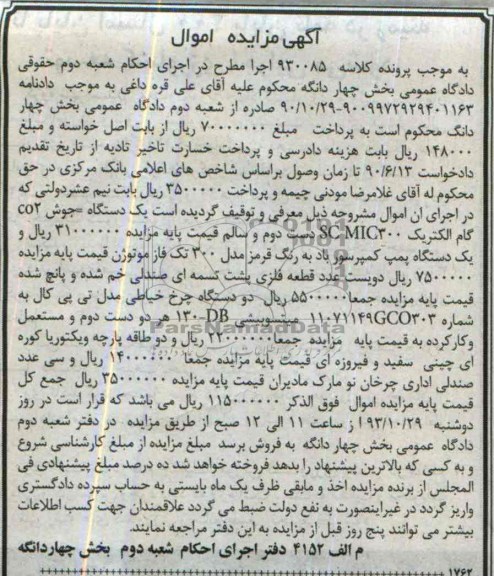 آگهی مزایده اموال
به موجب پرونده کلاسه ۹۳۰۰۸۵ اجرا مطرح در اجرای احکام شعبه دوم حقوقی
دادگاه عمومی بخش چهار دانگه محکوم علیه آقای علی قره داغی به موجب دادنامه
۹۰۰۹۹۷۲۹۲۹۴۰۱۱۶۳-۹۰/۱۰/۲۹ صادره از شعبه دوم دادگاه عمومی بخش چهار
دانگ محکوم است به پرداخت مبلغ ۷۰۰۰۰۰۰۰ ریال از بابت اصل خواسته و مبلغ
۱۴۸۰۰۰ ریال بابت هزینه دادرسی و پرداخت خسارت تاخیر تادیه از تاریخ تقدیم
دادخواست ۹۰/۶/۱۳ تا زمان وصول براساس شاخص های اعلامی بانک مرکزی در حق
محکوم له آقای غلامرضا مودنی چیمه و پرداخت ۳۵۰۰۰۰۰ ریال بابت نیم عشردولتی که
در اجرای ان اموال مشروحه ذیل معرفی و توقیف گردیده است یک دستگاه جوش co۲
گام الکتریک SC MIC۳۰۰ دست دوم و سالم قیمت پایه مزایده ۳۱۰۰۰۰۰۰ ریال و
یک دستگاه پمپ کمپرسور باد به رنگ قرمز مدل ۳۰۰ تک فاز موتوژن قیمت پایه مزایده
۷۵۰۰۰۰۰ ریال دویست عدد قطعه فلزی پشت تسمه ای صندلی خم شده و پانچ شده
قیمت پایه مزایده جمعا ۵۵۰۰۰۰۰ ریال دو دستگاه چرخ خیاطی مدل تی پی کال به
شماره ۱۱۰۷۱۱۴۹GCO۳۰۳ میتسوبیشی ۱۳۰-DB هر دو دست دوم و مستعمل
وکارکرده به قیمت پایه مزایده جمعا ۲۲۰۰۰۰۰۰ ریال و دو طاقه پارچه ویکتوریا کوره
ای چینی سفید و فیروزه ای قیمت پایه مزایده جمعا ۱۴۰۰۰۰۰۰ ریال و سی عدد
صندلی اداری چرخان نو مارک مادیران قیمت پایه مزایده ۳۵۰۰۰۰۰۰ ریال جمع کل
قیمت پایه مزایده اموال فوق الذکر ۱۱۵۰۰۰۰۰۰ ریال می باشد که قرار است در روز
دوشنبه ۹۳/۱۰/۲۹ ا ز ساعت ۱۱ الی ۱۲ صبح از طریق مزایده در دفتر شعبه دوم
دادگاه عمومی بخش چهار دانگه به فروش برسد مبلغ مزایده از مبلغ کارشناسی شروع
و به کسی که بالاترین پیشنهاد را بدهد فروخته خواهد شد ده درصد مبلغ پیشنهادی فی
المجلس از برنده مزایده اخذ و مابقی ظرف یک ماه بایستی به حساب سپرده دادگستری
واریز گردد در غیراینصورت به نفع دولت ضبط می گردد علاقمندان جهت کسب اطلاعات
بیشتر می توانند پنج روز قبل از مزایده به این دفتر مراجعه نمایند.
م الف ۴۱۵۲ دفتر اجرای احکام شعبه دوم بخش چهاردانگه
۱۷۶۲
ParsNamadData